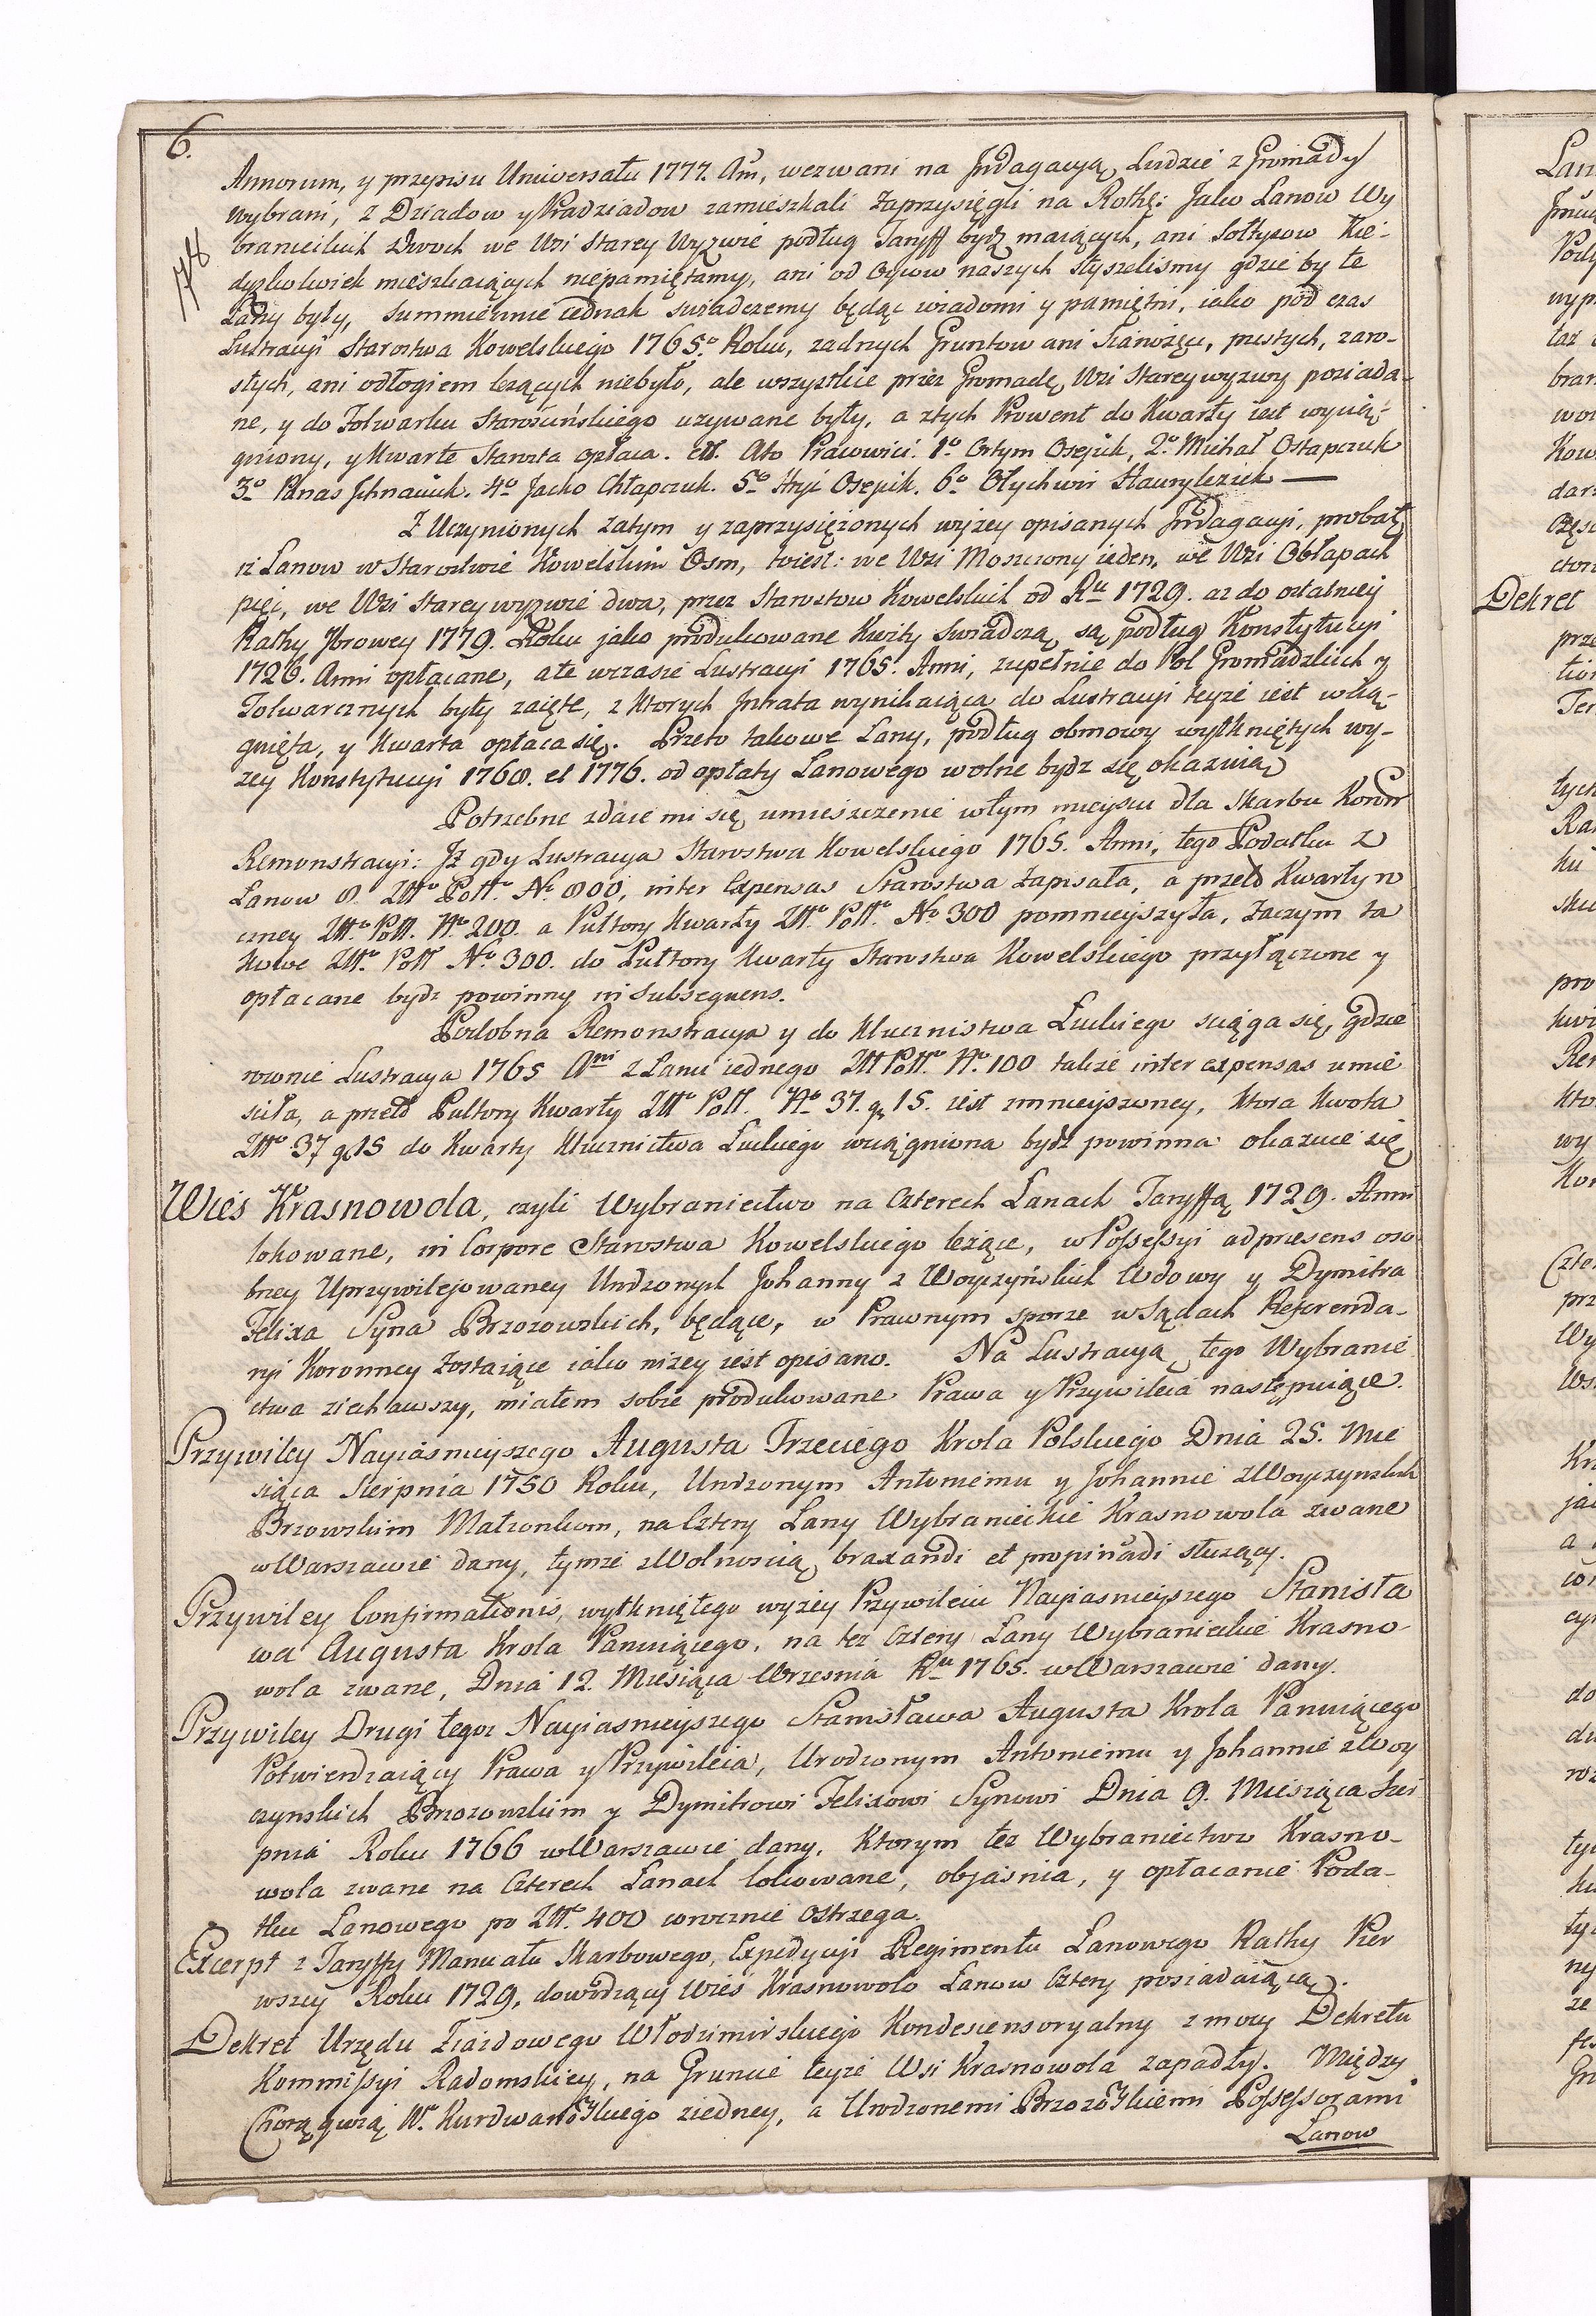 6.
Annorum, y przepisu Uniwersału 1777. Ani, wezwani na Jndagacyą Ludzie z Gromady
wybrani, z Dziadow y Pradziadow zamieszkali zaprzysięgli na Rothę: Jako Lanow Wy
branieckich dwoch we Wsi Starey Wyzwie podług Taryff bydz maiących, ani Sołtysow Kie-
dyzkolwiek mieszkaiących niepamiętamy, ani od Oycow naszych słyszelismy gdzie by te
178
Łany były, Summiennie iednak swiadczemy będąc wiadomi y pamiętni, iako pod czas
Lustracyi Starostwa Kowelskiego 1765.o Roku, zadnych Gruntow ani Sianożęci, pustych, zaro-
słych, ani odłogiem leżących niebyło, ale wszystkie przez Gromadę Wsi Starey wyzwy posiada-
ne, y do Folwarku używane były, a ztych Prowent do Kwarty iest wycią-
gniony, y Kwarte Starosta opłaca. etc. Ato Prawowici. 1o Ortym Osejuk, 2o Michał Ostapczuk
3o Panas Jchnaciuk. 4o Jacko Chłapczuk. 5o Hryc Osejuk. 6o Ołychwir Hawryłczuk —
Z Uczynionych zatym y zaprzysiężonych wyżey opisanych Jndagacyi, probat,
iz Lanow w Starostwie Kowelskim Osm, toiest: we Wsi Moszczony ieden, we Wsi Obłapach
pięć, we Wsi Starey wyzwie dwa, przez Starostow Kowelskich od Ru 1729. az do ostatniey
Rathy 7browey 1779. Roku jako produkowane Kwity swiadczą, są podług Konstytucyi
1726. Anni opłacane, ale wczasie Lustracyi 1765. Anni, zupełnie do Pol Gromadzkich y
Folwarcznych były zaięte, z Ktorych Jntrata wynikaiąca do Lustracyi teyże iest wcią-
gnięta, y Kwarta opłaca się. Przeto takowe Lany, podług obmowy wytkniętych wy-
zey Konstytucyi 1768. et 1776. od opłaty Lanowego wolne bydz się okazuią
Potrzebne zdaie mi się umieszczenie wtym mieyscu dla Skarbu Koron
Remonstracyi: Jż gdy Lustracya Starostwa Kowelskiego 1765. Anni, tego Podatku z
Lanow 8. Złto Poll.o No 800, inter Expensas Starostwa zapisała, a przeto Kwarty ro
czney Złto Poll. No 200. a Pułtory Kwarty Złto Poll.o No 300 pomnieyszyła, zaczym ta
kowe Złto Poll No 300. do Pułtory Kwarty Starostwa Kowelskiego przyłączone y
opłacane bydz powinny in Subsequens.
Podobna Remonstracya y do Klucznistwa Łuckiego sciąga się, gdzie
rownie Lustracya 1765 Ani z Lanu iednego Złł Poll.o No 100 takze inter expensas umie
sciła, a przeto Pułtory Kwarty Złto Poll. No 37. gr 15. iest zmnieyszoney, Ktora Kwota
Złto 37 gr 15 do Kwarty Klucznictwa Łuckiego wciągniona bydz powinna okazuie się
Wieś Krasnowola, czyli Wybraniectwo na Czterech Lanach Taryffą 1729. Anni
lokowane, in Corpore Starostwa Kowelskiego leżące, w Possessyi adpresens oso
bney Uprzywilejowaney Urodzonych Johanny z Woyczyńskich Wdowy y Dymitra
Felixa Syna Brzozowskich, będące, w Prawnym sporze w Sądach Referenda-
ryi Koronney zostaiące iako niżey iest opisano. Na Lustracyą tego Wybranie
ctwa ziechawszy, miałem sobie produkowane Prawa y Przywileia następuiące.
Przywiley Nayiasnieyszego Augusta Trzeciego Krola Polskiego Dnia 25. Mie
siąca Sierpnia 1750 Roku, Urodzonym Antoniemu y Johannie z Woyczynskich
Brzowskim Małzonkom, na Cztery Lany Wybranieckie Krasnowola zwane
w Warszawie dany, tymże z Wolnoscią braxandi et propinadi słuzący.
Przywiley Confirmationis, wytkniętego wyżey Przywileiu Nayiasnieyszego Stanisła
wa Augusta Krola Panuiącego, na tez Cztery Lany Wybranieckie Krasno-
wola zwane, Dnia 12. Miesiąca Wrzesnia Ru 1765. w Warszawie dany.
Przywiley Drugi tegoz Nayiasnieyszego Stanisława Augusta Krola Panuiącego
Potwierdzaiący Prawa y Przywileia, Urodzonym Antoniemu y Johannie z Woy
czynskich Brzozowskim y Dymitrowi Felixowi Synowi Dnia 9. Miesiąca Sier
pnia Roku 1766 w Warszawie dany, Ktorym tez Wybraniectwo Krasno-
wola zwane na Czterech Lanach lokowane, objasnia, y opłacanie Poda-
tku Lanowego po Złł. 400 corocznie ostrzega.
Excerpt z Taryffy Manuału Skarbowego, Expedycyi Regimentu Lanowego Rathy Pier
wszey Roku 1729, dowodzący Wieś Krasnowolo Lanow Cztery posiadaiącą.
Dekret Urzędu Ziazdowego Włodzimirskiego Kondescensoryalny z mocy Dekretu
Kommissyi Radomskiey, na Gruncie teyże Wsi Krasnowola zapadły. Między
Chorągwią W. Kurdwanoskiego ziedney, a Urodzonemi Brzozoskiemi Possessorami
Lanow